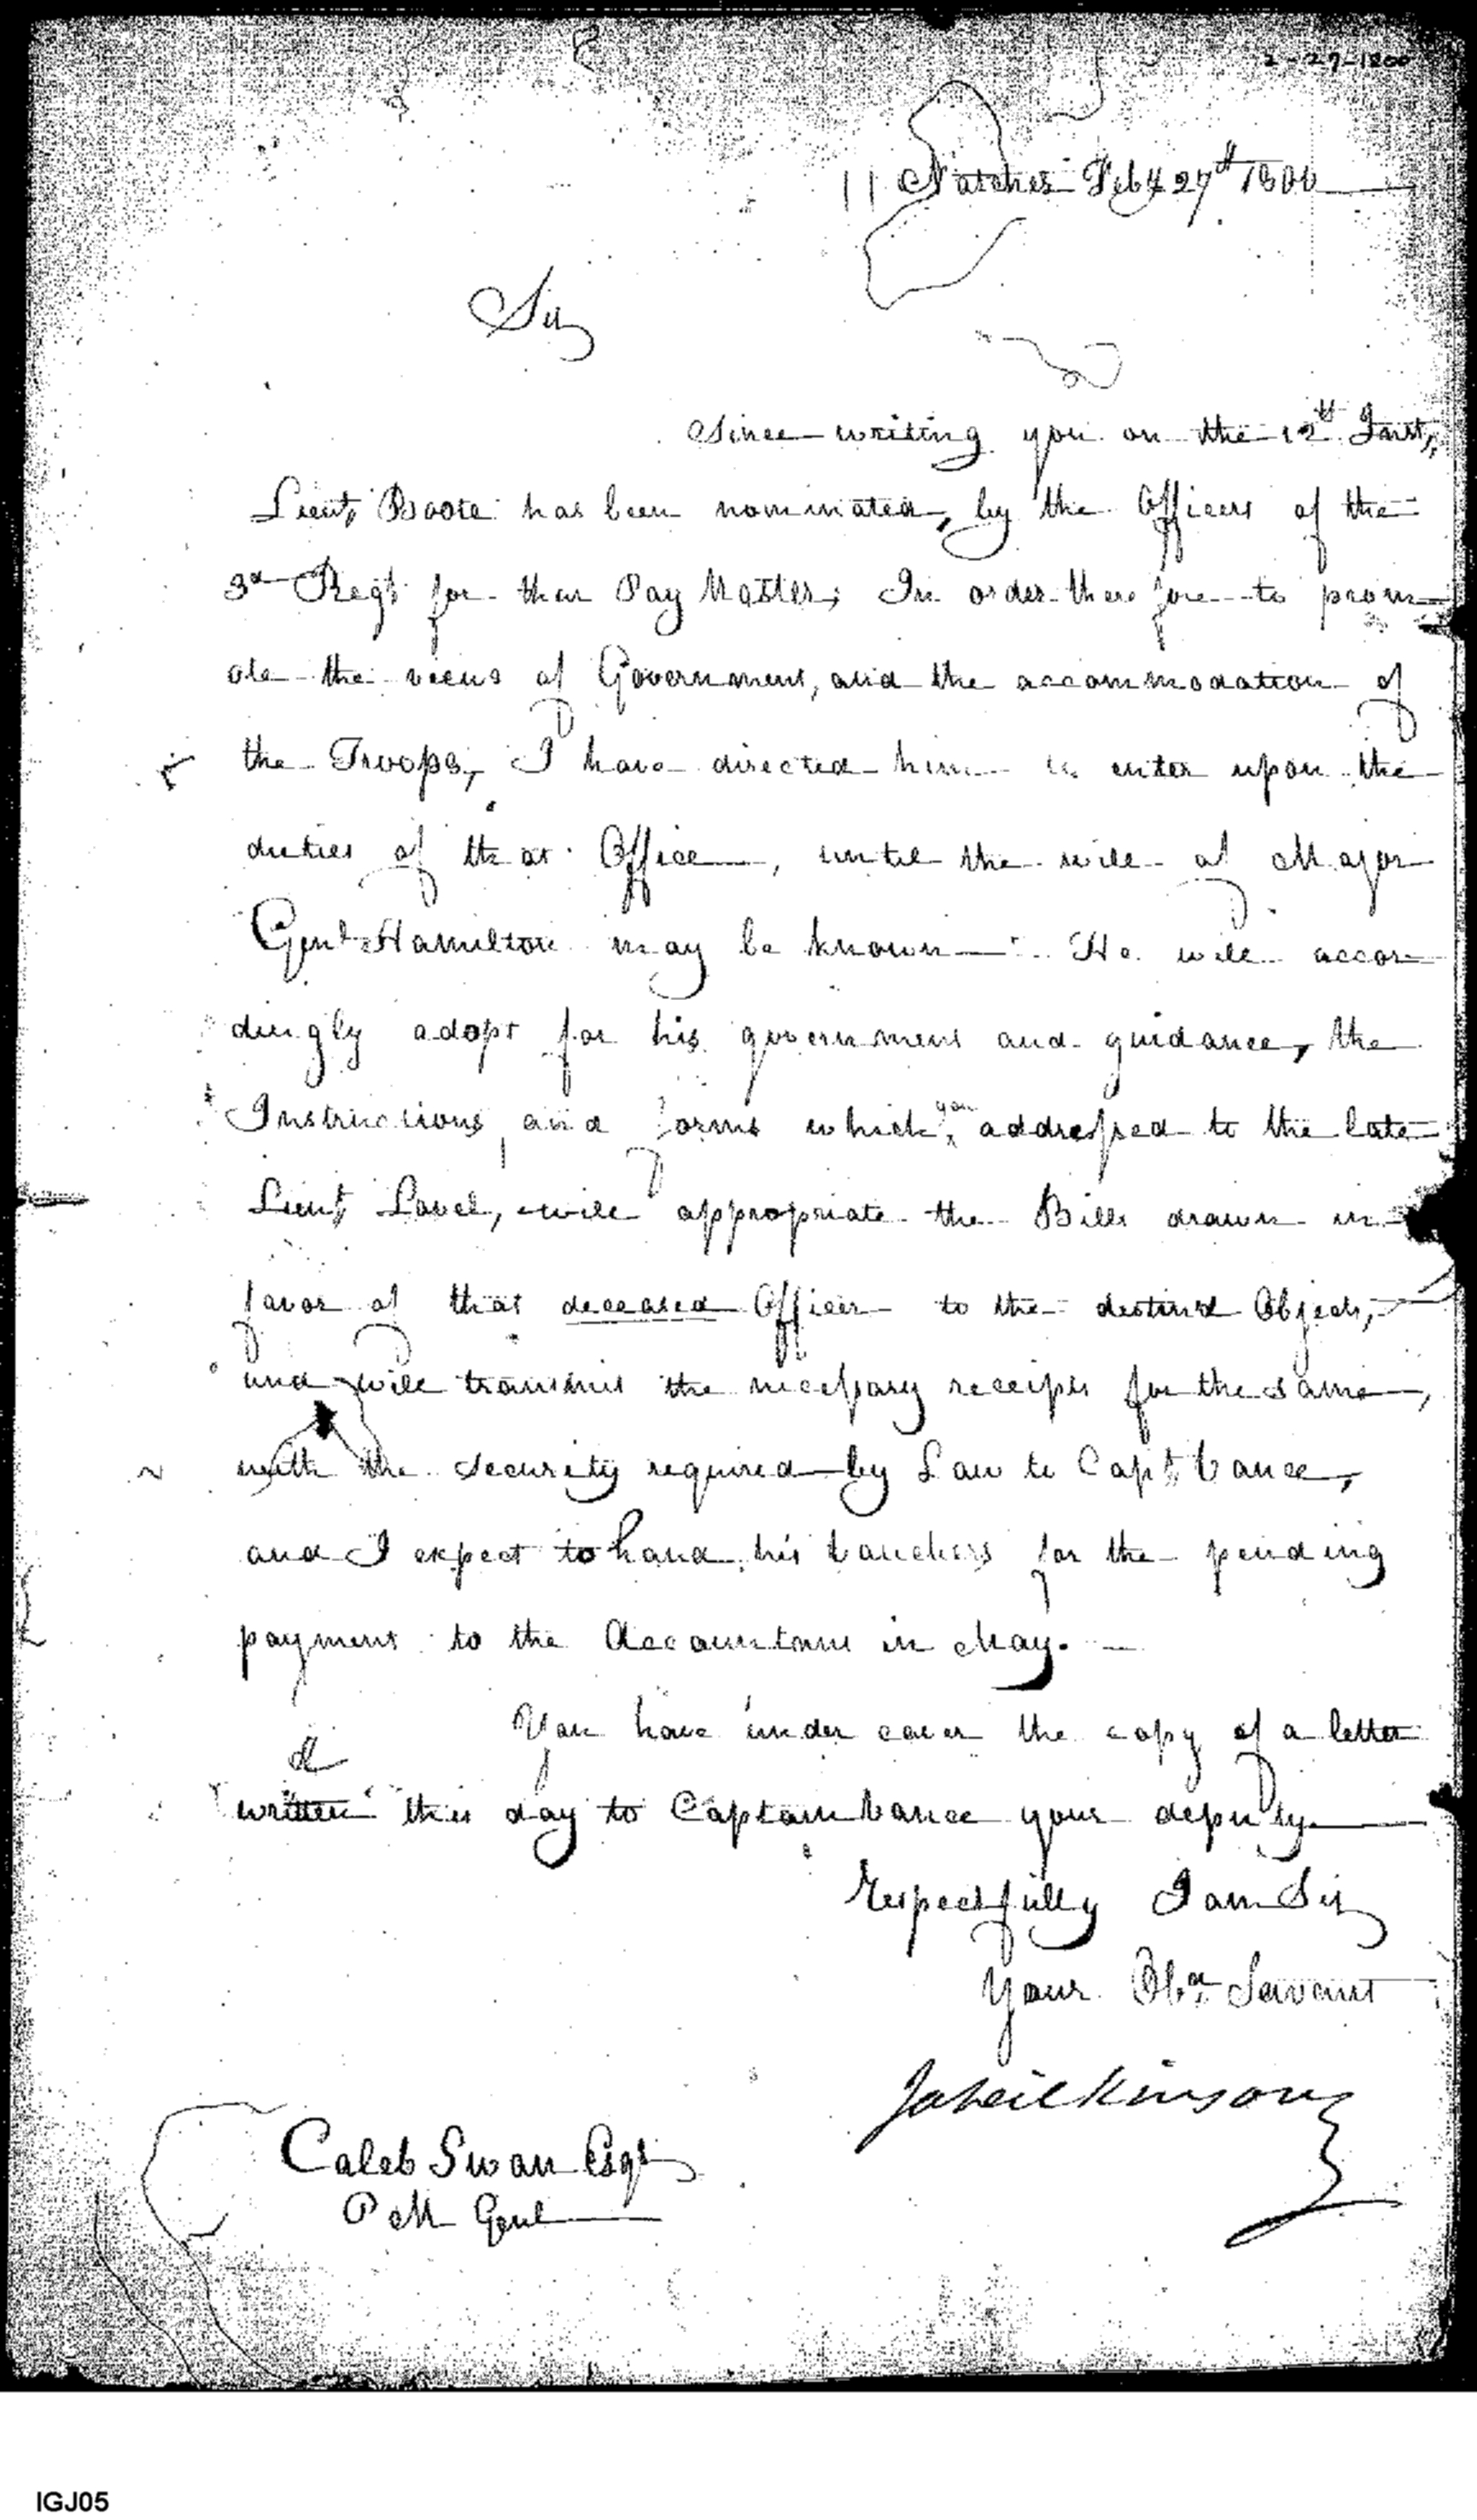 2-27-1800
Natches Feby 27th 1800
Sir
Since writing you on the 12th Inst,
Lieut, Boote has been nominated, by the Officers of the
3d Regt for their Pay Master; In order therefore to prom
ote the views of Government, and the accommodation of
the Troops, I have directed him to enter upon the
duties of that Office, until the will of Major
Genl Hamilton may be known — He will accor
dingly adopt for his government and guidance, the
Instructions, and forms which you addressed to the late
Lieut, Lovel, will appropriate the Bills drawn in
favor of that deceased Officer to the destin'd Objects,
and will transmit the necessary receipts for the same,
with the security required by Law to Capt. Vance,
and I expect to hand his Vouchers for the pending
payment to the Accountant in May. —
You have under cover the copy of a letter
written this day to Captain Vance your deputy
Respectfully I am Sir
Your Obt Servant
Ja Wilkinson
Caleb Swan Esqr
P M Genl
IGJ05